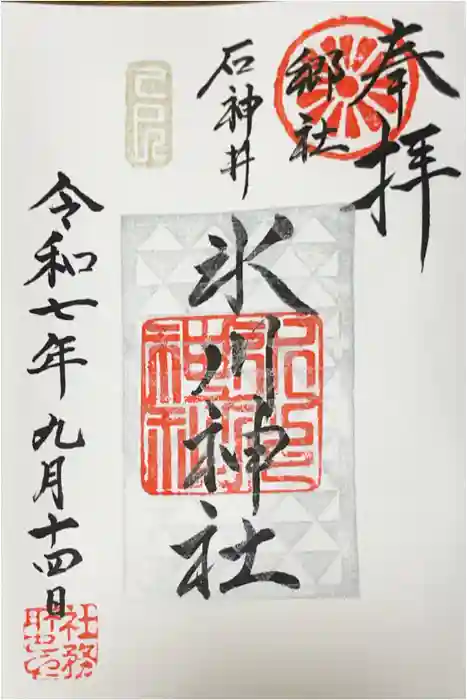 奉拝
郷社
石神井
氷川神社
令和七年九月十四日
社務所印